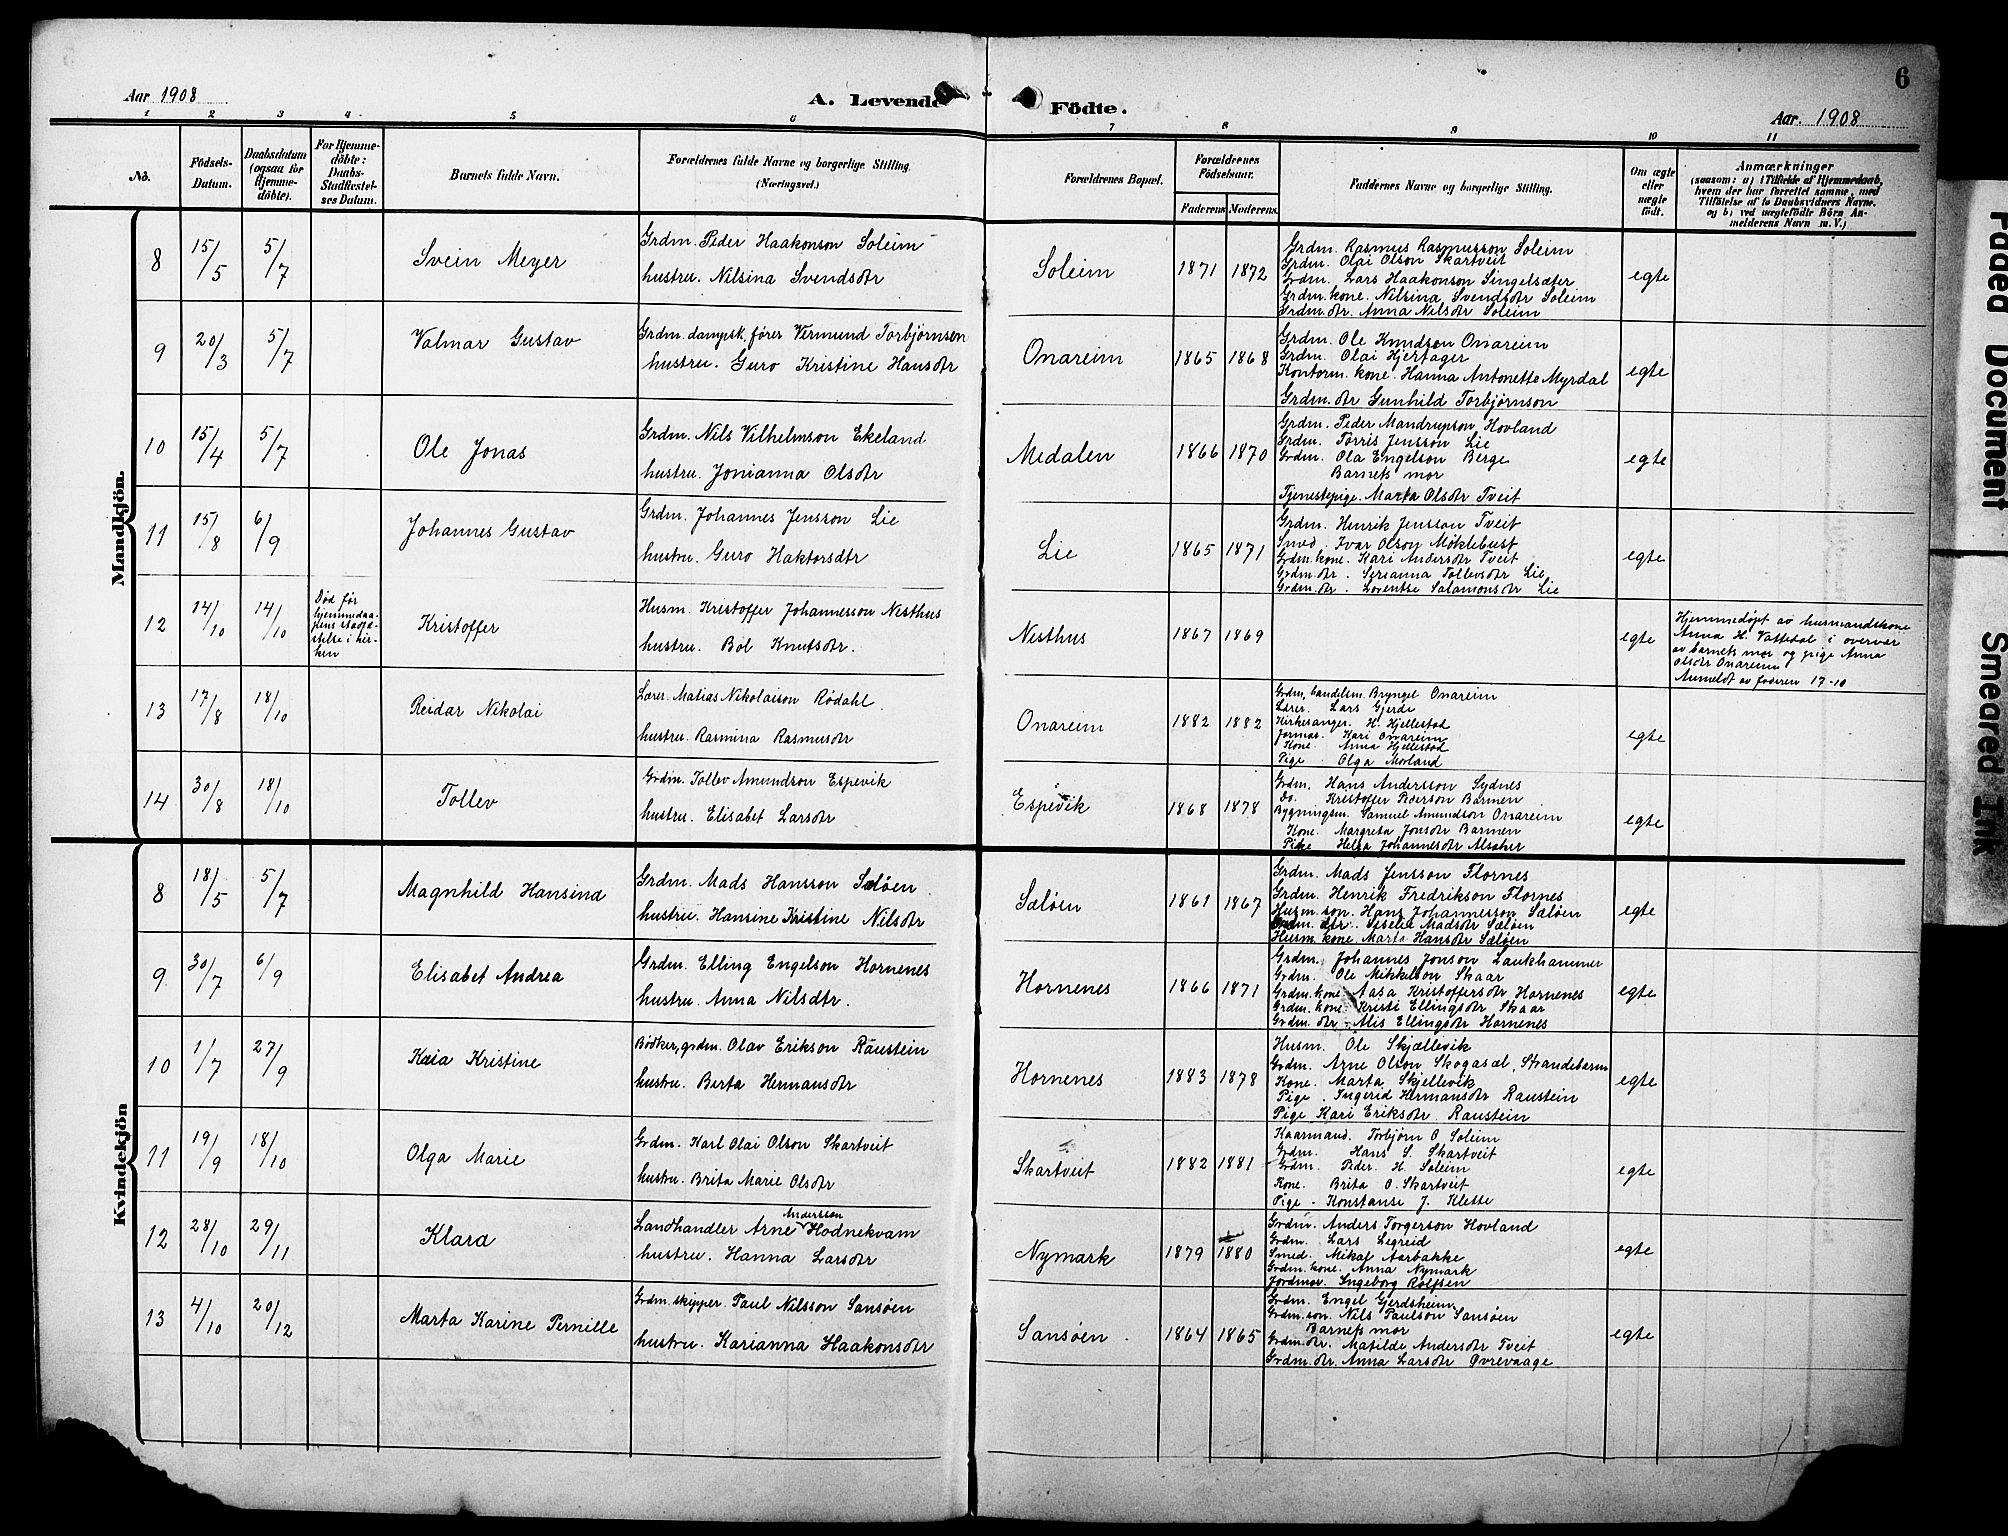 6
Aar 1908
A. Levende Födte.
Aar. 1908
1 2 3 4 5 6 7 8 9 10 11
No.
Födsels-Datum.
Daabsdatum (ogsaa for Hjemme-döbte).
For Hjemme-döbte: Daabs-Stadfæstel-ses Datum.
Barnets fulde Navn.
Forældrenes fulde Navne og borgerlige Stilling. (Næringsvei.)
Forældrenes Bopæl.
Forældrenes Födselsaar.
Faderens Moderens.
Faddernes Navne og borgerlige Stilling.
Om ægte eller uægte födt.
Anmærkninger
(saasom: a) i Tilfælde af Hjemmedaab,
hvem der har forrettet samme, med
Tilföielse af to Daabsvidners Navne.
og b) ved uægtefödte Börn An-
melderens Navn m. V.)
Mandkjön.
8 15/5 5/7 Svein Meyer
Grdm. Peder Haakonson Soleim
hustru. Nilsina Svendsdtr
Soleim 1871 1872
Grdm. Rasmus Rasmusson Soleim
Grdm. Olai Olson Skartveit
Grdm. Lars Haakonson Singelsæter
Grdm. kone. Nilsina Svendsdtr Soleim
Grdm. dtr. Anna Nilsdtr Soleim
egte
9 20/3 5/7 Valmar Gustav
Grdm. dampsk. fører Vermund Torbjørnsen
hustru. Guro Kristine Hansdtr
Onareim 1865 1868
Grdm. Ole Knudson Onareim
Grdm. Olai Hjertager
Kontorm. kone. Hanna Antonette Myrdal
Grdm. dtr Gunhild Torbjørnson
egte
10 15/4 5/7 Ole Jonas
Grdm. Nils Vilhelmson Ekeland
hustru. Jonianna Olsdtr
Medalen 1866 1870
Grdm. Peder Mandrupson Hovland
Grdm. Torris Jensson Lie
Grdm. Ola Engelson Berge
Barnets mor
Tjenestepige. Marta Olsdtr Tveit
egte
11 15/8 6/9 Johannes Gustav
Grdm. Johannes Jensson Lie
hustru. Guro Haktorsdtr
Lie 1865 1871
Grdm. Henrik Jensson Tveit
Smed. Ivar Olson Møklebust
Grdm. kone. Kari Andersdtr Tveit
Grdm. dtr. Serianna Tollevsdtr Lie
Grdm. dtr. Lorentse Salamonsdtr Lie
egte
12 14/10 14/10
Død før
hjemmedaa-
pens stadf-
stelse i kir-
ken
Kristoffer
Husm. Kristoffer Johannesson Nesthus
hustru. Bol Knutsdtr.
Nesthus 1867 1869
egte
Hjemmedøpt av husmandskone
Anna H. Vattedal i overvær
av barnets mor og pige Anna
Olsdtr Onareim
Anmeldt av faderen 17-10
13 17/8 18/10 Reidar Nikolai
Lærer. Matias Nikolaison Rødahl.
hustru. Rasmina Rasmusdtr
Onareim 1882 1882
Grdm, handelsm. Bryngel Onareim
Lærer. Lars Gjerde
Kirkesanger. H. Hjellestad
Jormor. Kari Onareim
Kone. Anna Hjellestad
Pige Olga Morland
egte
14 30/8 18/10 Tollev
Grdm. Tollev Amundson Espevik
hustru. Elisabet Larsdtr
Espevik 1868 1878
Grdm. Hans Andersson Sydnes
Do. Kristoffer Pederson Barmen
Bygningsm. Samuel Amundson Onareim
Kone. Margreta Jonsdtr Barmen
Pike Helga Johannesdtr Alsaker
egte
Kvindekjön
8 18/5 5/7 Magnhild Hansina
Grdm. Mads Hansson Sæløen
hustru. Hansine Kristine Nilsdtr
Sæløen 1861 1867
Grdm. Mads Jensson Flornes
Grdm. Henrik Fredrikson Flornes
Husm. son. Hans Johannesson Sæløen
Grdm. dtr. Siselie Madsdtr Sæløen
Husm. kone Marta Hansdtr Sæløen
egte
9 30/7 6/9 Elisabet Andrea
Grdm. Elling Engelson Hornenes
hustru. Anna Nilsdtr.
Hornenes 1866 1871
Grdm. Johannes Jonson Laukhammer
Grdm. Ole Mikkelson Skaar
Grdm. kone Aasa Kristoffersdtr Hornenes
Grdm. kone Kristi Ellingsdtr Skaar
Grdm. dtr. Alis Ellingsdtr Hornenes
egte
10 1/7 27/9 Kaia Kristine
Bødker, grdm. Olav Erikson Raustein
hustru. Berta Hermansdtr
Hornenes 1883 1878
Husm. Ole Skjællevik
Grdm. Arne Olson Skogasæl, Strandebarm
Kone. Marta Skjellevik
Pige. Ingerid Hermansdtr Raustein
Pige Kari Eriksdtr. Raustein
egte
11 19/9 18/10 Olga Marie
Grdm. Karl Olai Olson Skartveit
hustru. Brita Marie Olsdtr
Skartveit 1882 1881
Kaarmand. Torbjørn O Soleim
Grdm. Hans S. Skartveit
Grdm. Peder H. Soleim
Kone. Brita O. Skartveit
Pige - Konstanse J. Klette
egte
12 28/10 29/11 Klara
Andersson
Landhandler Arne Hodnekvam
hustru. Hanna Larsdtr
Nymark 1879 1880
Grdm. Anders Torgerson Hovland
Grdm. Lars Legreid
Smed. Mikal Aarbakke
Grdm. kone. Anna Nymark
Jordmor. Ingeborg Rolfsen
egte
13 4/10 20/12 Marta Karine Pernille
Grdm. skipper. Paul Nilsson Sansøen
hustru. Karianna Haakonsdtr
Sansøen. 1864 1865
Grdm. Engel Gjerdsheim
Grdm. son. Nils Paulson Sansøen
Barnets mor
Grdm. dtr. Matilde Andersdtr Tveit
Grdm. dtr. Anna Larsdtr Øvrevaage
egte
Faded Document
Smeared Ink